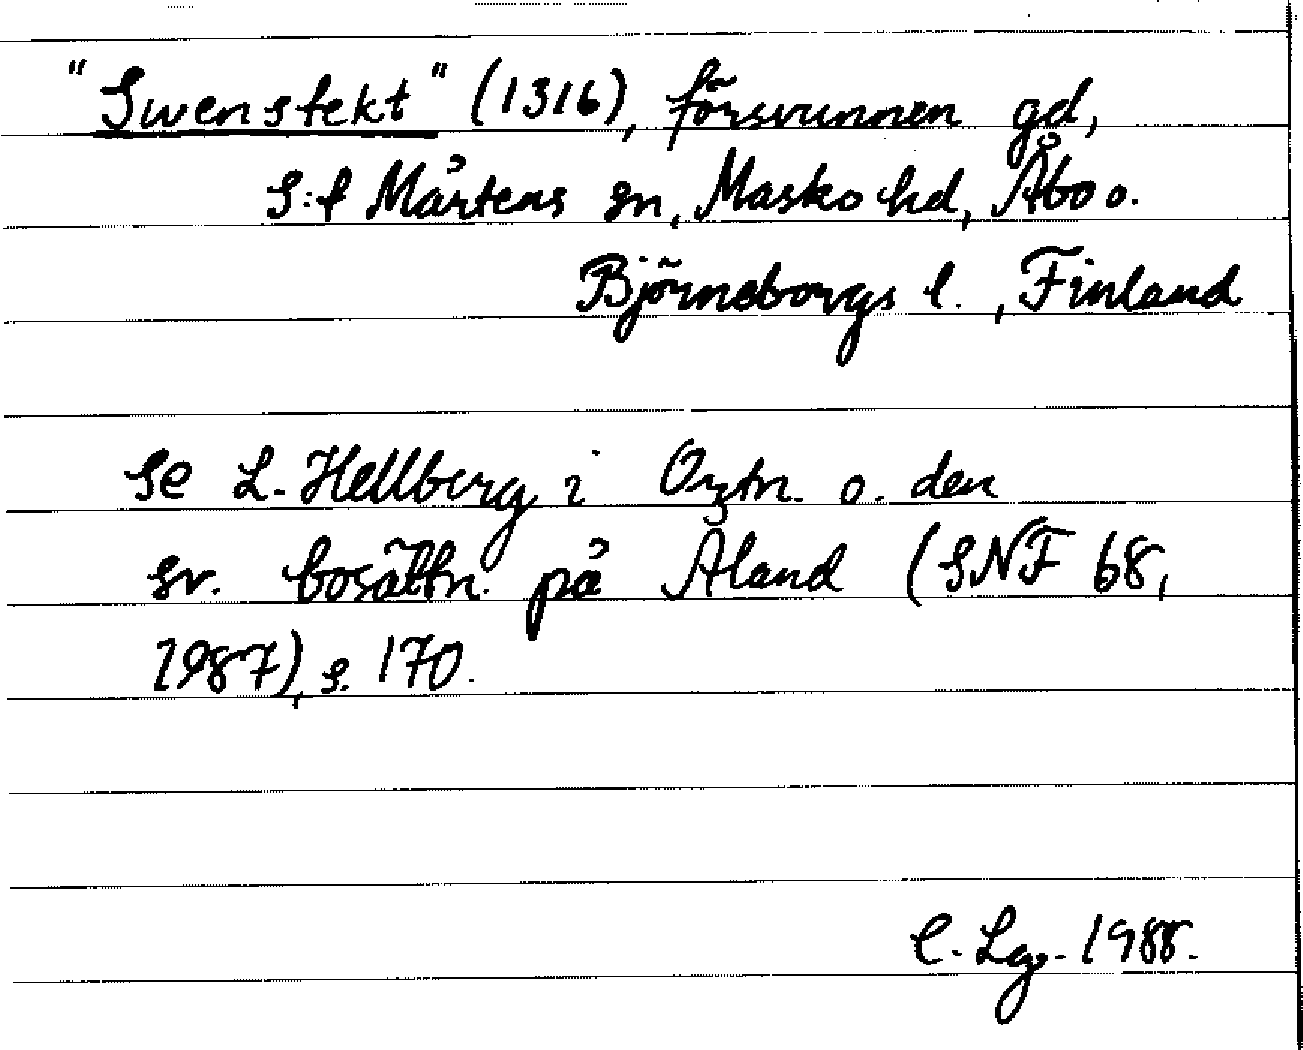 "Swenstekt" (1316), försvunnen gd,
S:t Mårtens sn, Masko hd, Åbo o.
Björneborgs l., Finland
Se L. Hellberg i Ortn. o. den
sv. bosättn. på Åland (SNF 68,
1987), s. 170.
C. Lg. 1988.